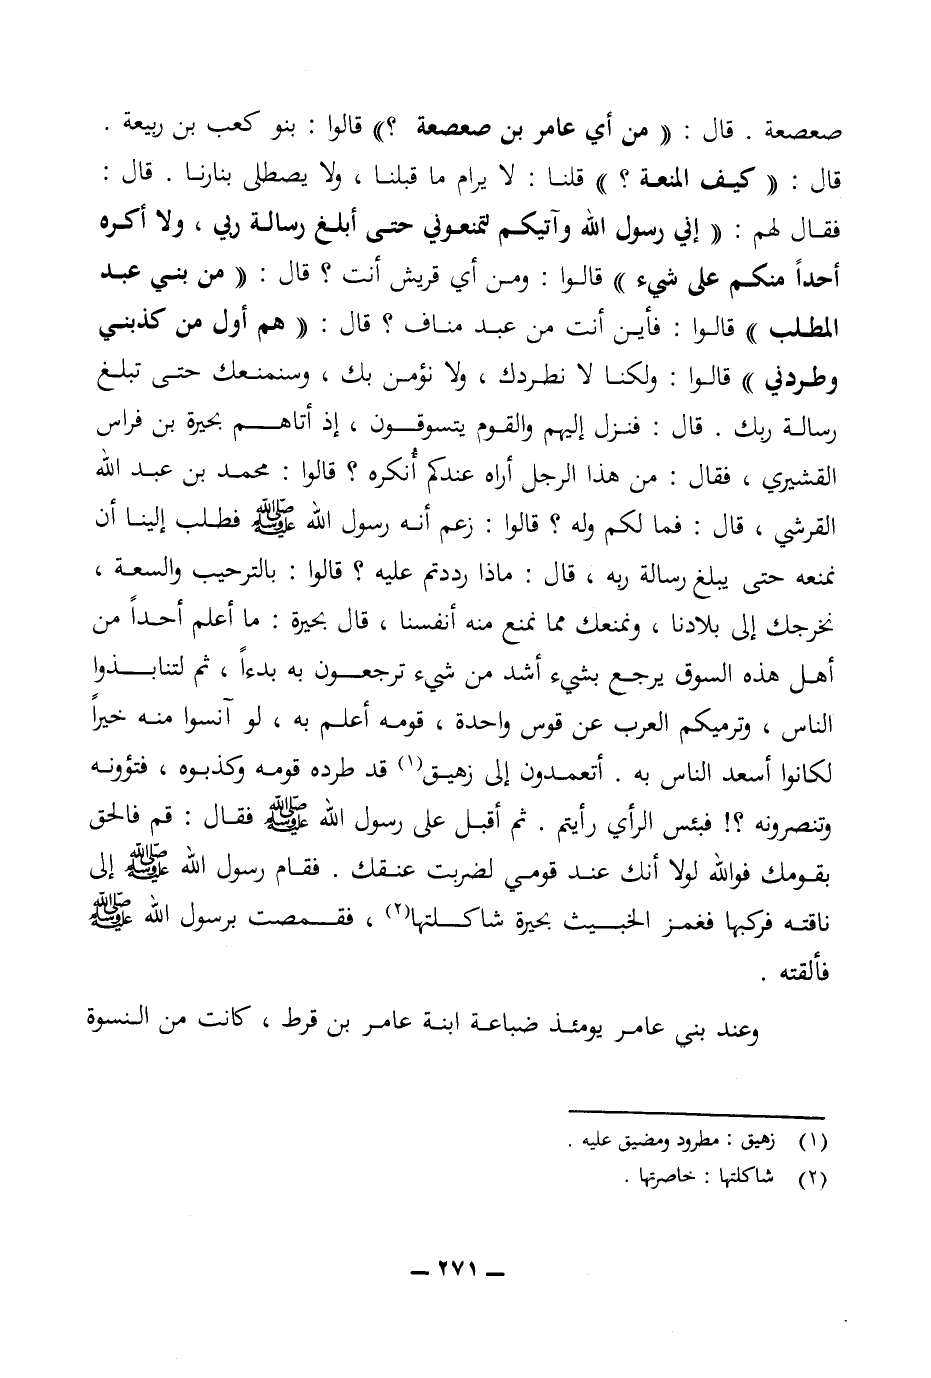 صعصعة . قال : « من أي عامر بن صعصعة ؟» قالوا : بنو كعب بن ربيعة .
قال : « كيف المنعة ؟ » قلنا : لا يرام ما قبلنا ، ولا يصطلى بنارنا . قال :
فقال لهم : « إني رسول الله وآتيكم لتمنعوني حتى أبلغ رسالة ربي ، ولا أكره
أحداً منكم على شيء » قالوا : ومن أي قريش أنت ؟ قال : « من بني عبد
المطلب » قالوا : فأين أنت من عبد مناف ؟ قال : « هم أول من كذبني
وطردني » قالوا : ولكنا لا نطردك ، ولا نؤمن بك ، وسنمنعك حتى تبلغ
رسالة ربك . قال : فنزل إليهم والقوم يتسوقون ، إذ أتاهم بحيرة بن فراس
القشيري ، فقال : من هذا الرجل أراه عندكم أُنكره ؟ قالوا : محمد بن عبد الله
القرشي ، قال : فما لكم وله ؟ قالوا : زعم أنه رسول الله ﷺ فطلب إلينا أن
نمنعه حتى يبلغ رسالة ربه ، قال : ماذا رددتم عليه ؟ قالوا : بالترحيب والسعة ،
نخرجك إلى بلادنا ، ونمنعك مما نمنع منه أنفسنا ، قال بحيرة : ما أعلم أحداً من
أهل هذه السوق يرجع بشيء أشد من شيء ترجعون به بدءاً ، ثم لتنابذوا
الناس ، وترميكم العرب عن قوس واحدة ، قومه أعلم به ، لو آنسوا منه خيراً
لكانوا أسعد الناس به . أتعمدون إلى زهيق(١) قد طرده قومه وكذبوه ، فتؤونه
وتنصرونه ؟! فبئس الرأي رأيتم . ثم أقبل على رسول الله ﷺ فقال : قم فالحق
بقومك فوالله لولا أنك عند قومي لضربت عنقك . فقام رسول الله ﷺ إلى
ناقته فركبها فغمز الخبيث بحيرة شاكلتها(٢) ، فقمصت برسول الله ﷺ
فألقته .
وعند بني عامر يومئذ ضباعة ابنة عامر بن قرط ، كانت من النسوة
(١) زهيق : مطرود ومضيق عليه .
(٢) شاكلتها : خاصرتها .
– ٢٧١ –